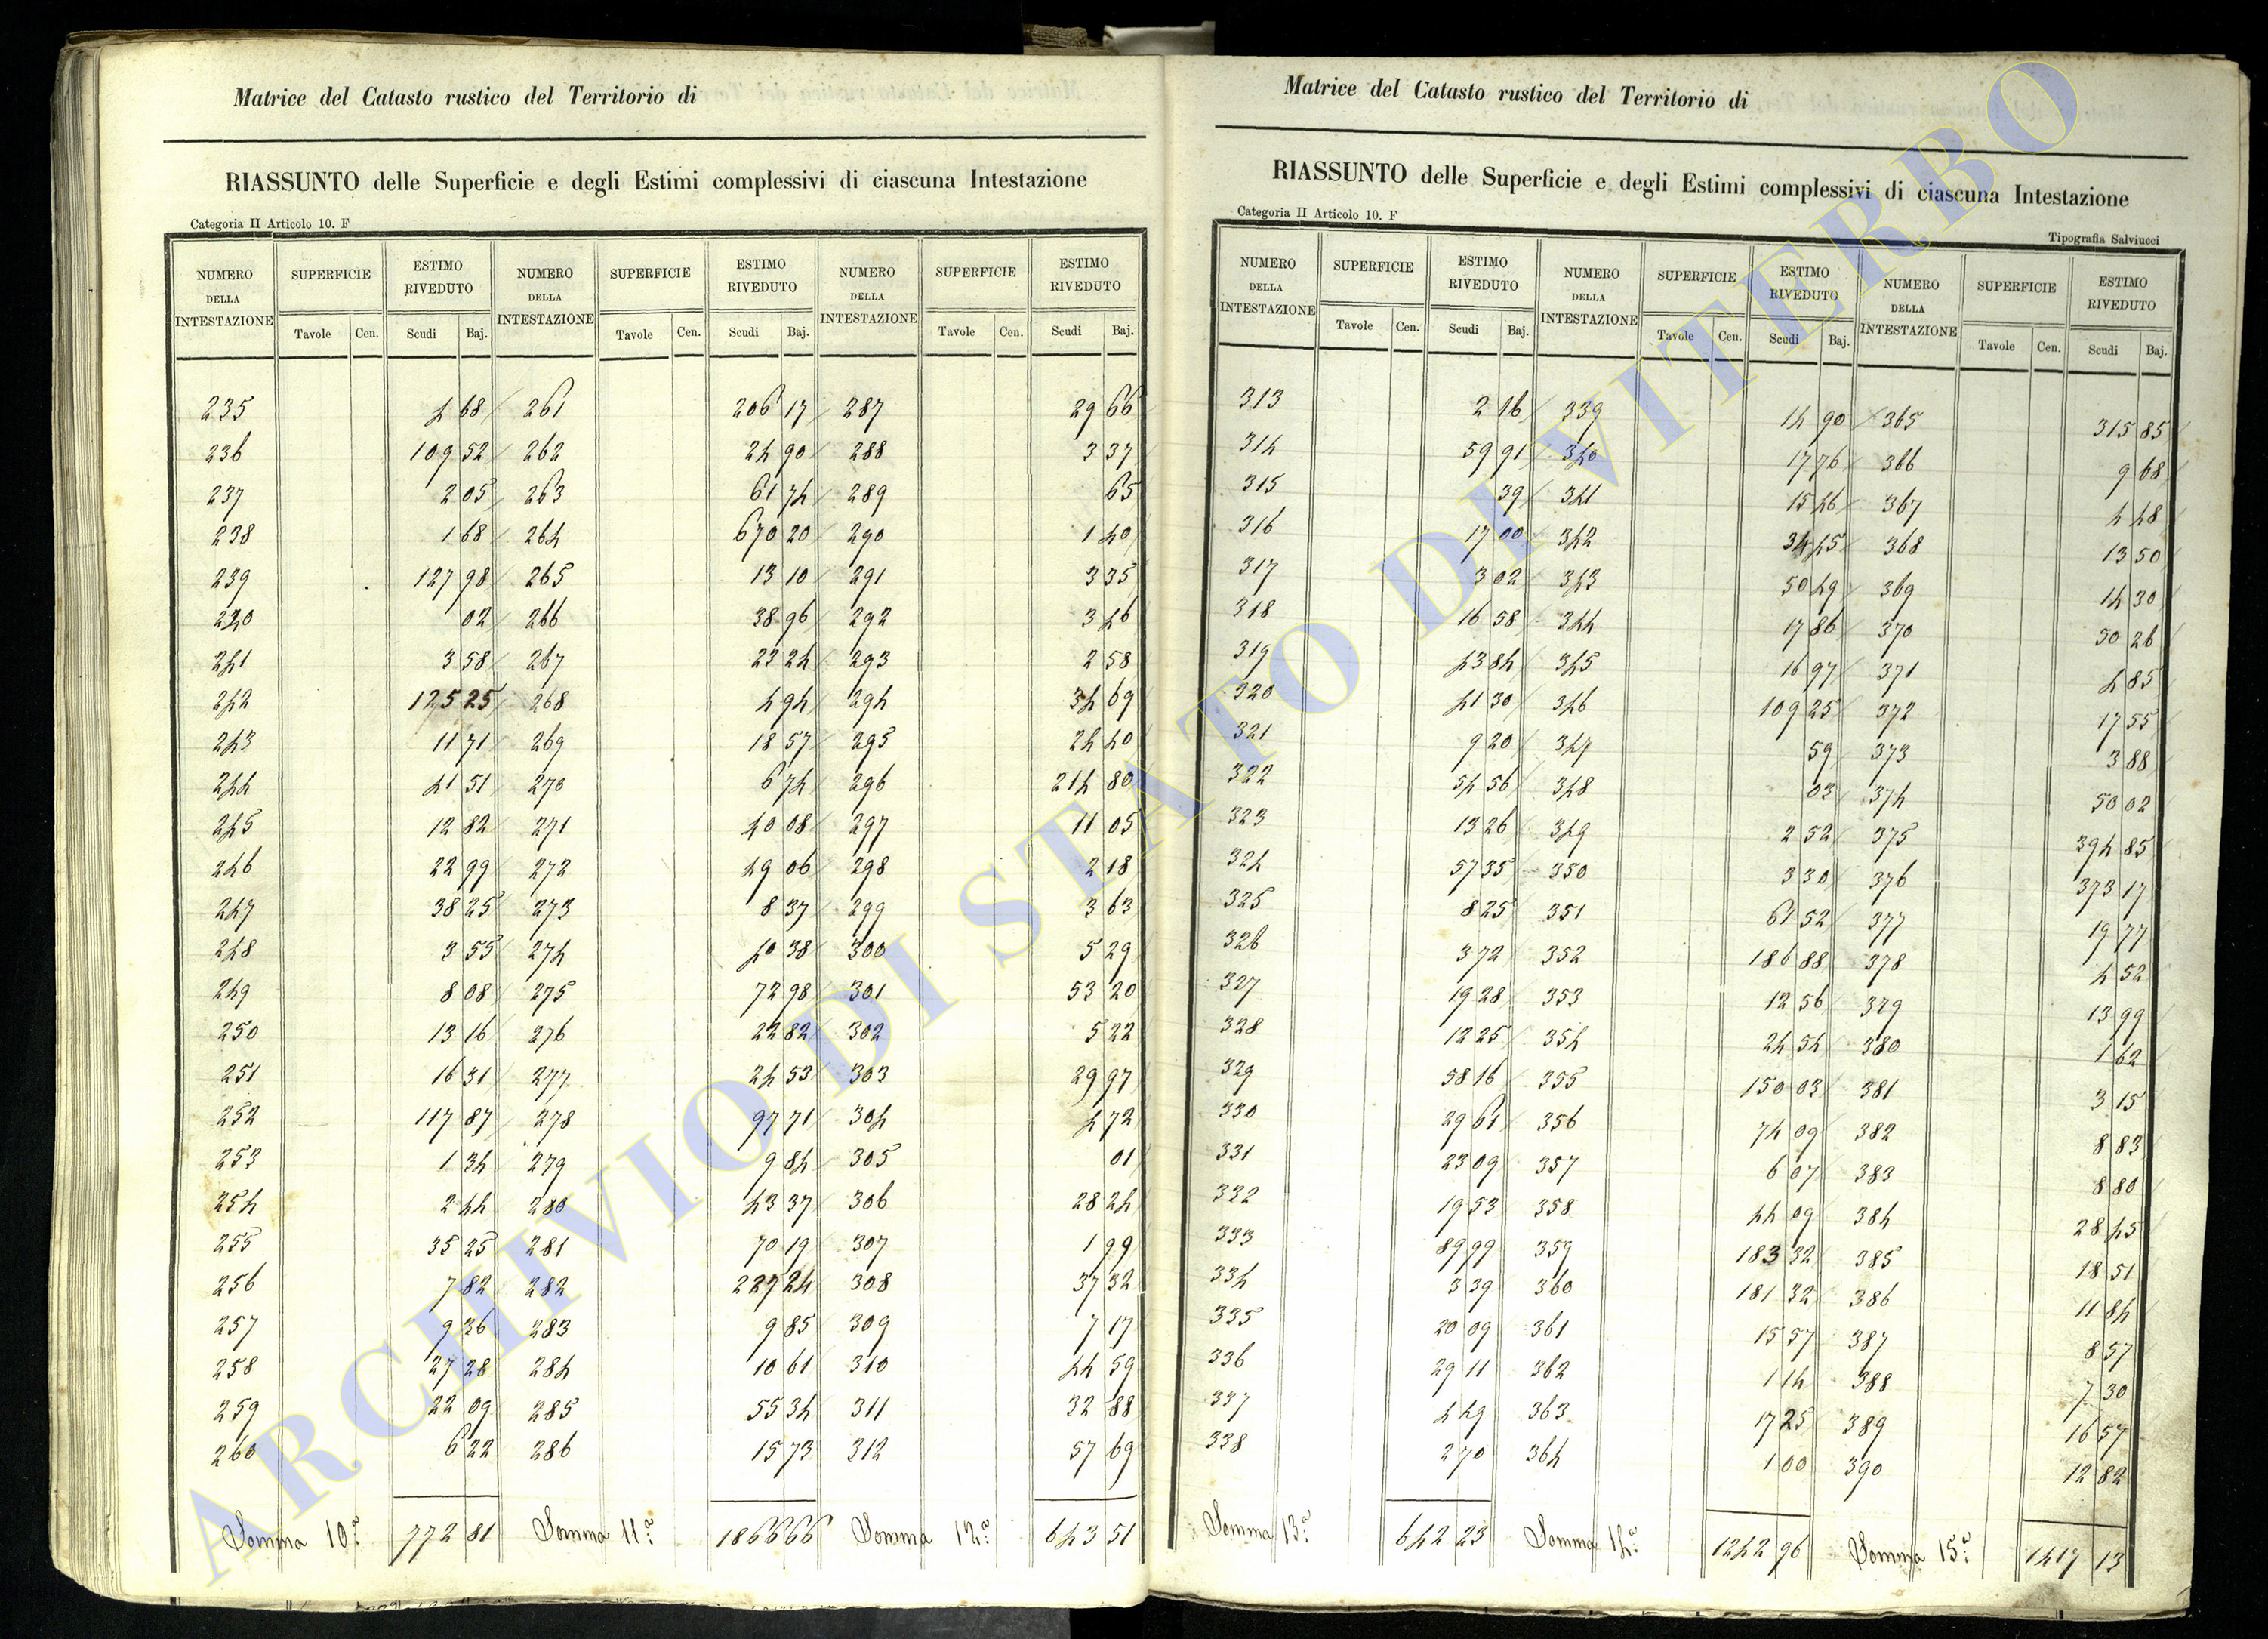 Matrice del Catasto rustico del Territorio di
RIASSUNTO delle Superficie e degli Estimi complessivi di ciascuna Intestazione
Categoria II Articolo 10. F
NUMERO DELLA INTESTAZIONE SUPERFICIE ESTIMO RIVEDUTO NUMERO DELLA INTESTAZIONE SUPERFICIE ESTIMO RIVEDUTO NUMERO DELLA INTESTAZIONE SUPERFICIE ESTIMO RIVEDUTO
Tavole Cen. Scudi Baj. Tavole Cen. Scudi Baj. Tavole Cen. Scudi Baj.
235 4 68 261 206 17 287 29 66
236 109 52 262 24 90 288 3 37
237 2 05 263 61 74 289 65
238 1 68 264 670 20 290 1 40
239 127 98 265 13 10 291 3 35
240 02 266 38 96 292 3 46
241 3 58 267 23 24 293 2 58
242 125 25 268 4 94 294 34 69
243 11 71 269 18 57 295 24 40
244 41 51 270 6 74 296 214 80
245 12 82 271 40 08 297 11 05
246 22 99 272 49 06 298 2 18
247 38 25 273 8 37 299 3 63
248 3 55 274 40 38 300 5 29
249 8 08 275 72 98 301 53 20
250 13 16 276 22 82 302 5 22
251 16 31 277 24 53 303 29 97
252 117 87 278 97 71 304 4 72
253 1 34 279 9 84 305 01
254 2 44 280 43 37 306 28 24
255 35 25 281 70 19 307 1 99
256 7 82 282 227 24 308 37 32
257 9 36 283 9 85 309 7 17
258 27 28 284 10 61 310 44 59
259 22 09 285 55 34 311 32 88
260 6 22 286 15 73 312 57 69
Somma 10.a 772 81 Somma 11.a 1866 66 Somma 12.a 643 51
Matrice del Catasto rustico del Territorio di
RIASSUNTO delle Superficie e degli Estimi complessivi di ciascuna Intestazione
Categoria II Articolo 10. F
Tipografia Salviucci
NUMERO DELLA INTESTAZIONE SUPERFICIE ESTIMO RIVEDUTO NUMERO DELLA INTESTAZIONE SUPERFICIE ESTIMO RIVEDUTO NUMERO DELLA INTESTAZIONE SUPERFICIE ESTIMO RIVEDUTO
Tavole Cen. Scudi Baj. Tavole Cen. Scudi Baj. Tavole Cen. Scudi Baj.
313 2 16 339 14 90 365 315 85
314 59 91 340 17 76 366 9 68
315 39 341 15 46 367 4 48
316 17 00 342 34 45 368 13 50
317 3 02 343 50 49 369 14 30
318 16 58 344 17 86 370 50 26
319 43 84 345 16 97 371 4 85
320 41 30 346 109 25 372 17 55
321 9 20 347 59 373 3 88
322 54 56 348 03 374 50 02
323 13 26 349 2 52 375 394 85
324 57 35 350 3 30 376 373 17
325 8 25 351 61 52 377 19 77
326 3 72 352 186 88 378 4 52
327 19 28 353 12 56 379 13 99
328 12 25 354 24 54 380 1 62
329 58 16 355 150 03 381 3 15
330 29 61 356 74 09 382 8 83
331 23 09 357 6 07 383 8 80
332 19 53 358 44 09 384 28 45
333 89 99 359 183 32 385 18 51
334 3 39 360 181 32 386 11 84
335 20 09 361 15 57 387 8 57
336 29 11 362 1 14 388 7 30
337 4 49 363 17 25 389 16 57
338 2 70 364 1 00 390 12 82
Somma 13.a 642 23 Somma 14.a 1242 96 Somma 15.a 1417 13
ARCHIVIO DI STATO DI VITERBO